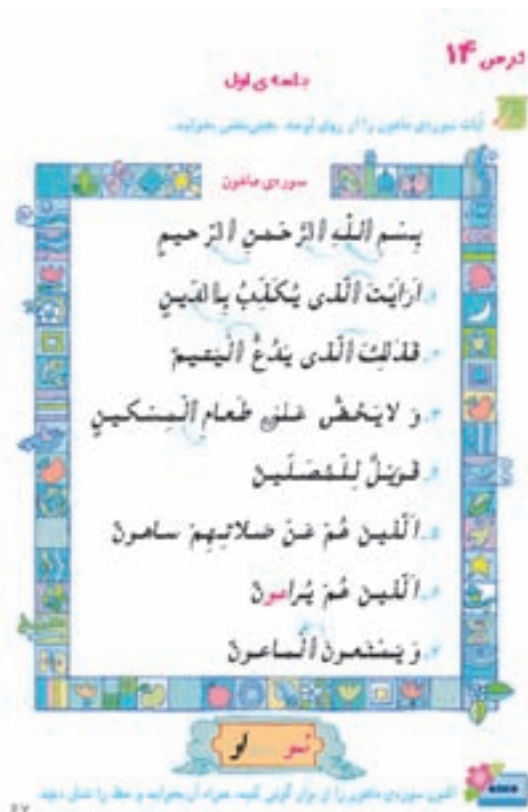 درس ۱۴
جلسه ی اول
آیات سوره‌ی ماعون را از روی لوحه، بخش‌بخش بخوانید.
سوره‌ی ماعون
بِسْمِ اللّٰهِ الرَّحْمنِ الرَّحیمِ
۱. اَرَاَیْتَ الَّذی یُکَذِّبُ بِالدّینِ
۲. فَذٰلِکَ الَّذی یَدُعُّ الْیَتیمَ
۳. وَ لا یَحُضُّ عَلیٰ طَعامِ الْمِسْکینِ
۴. فَوَیْلٌ لِلْمُصَلّینَ
۵. اَلَّذینَ هُمْ عَنْ صَلاتِهِمْ ساهونَ
۶. اَلَّذینَ هُمْ یُراءونَ
۷. وَ یَمْنَعونَ الْماعونَ
ئو
اکنون سوره‌ی ماعون را از نوار گوش کنید، همراه آن بخوانید و خط را نشان دهید
۶۷